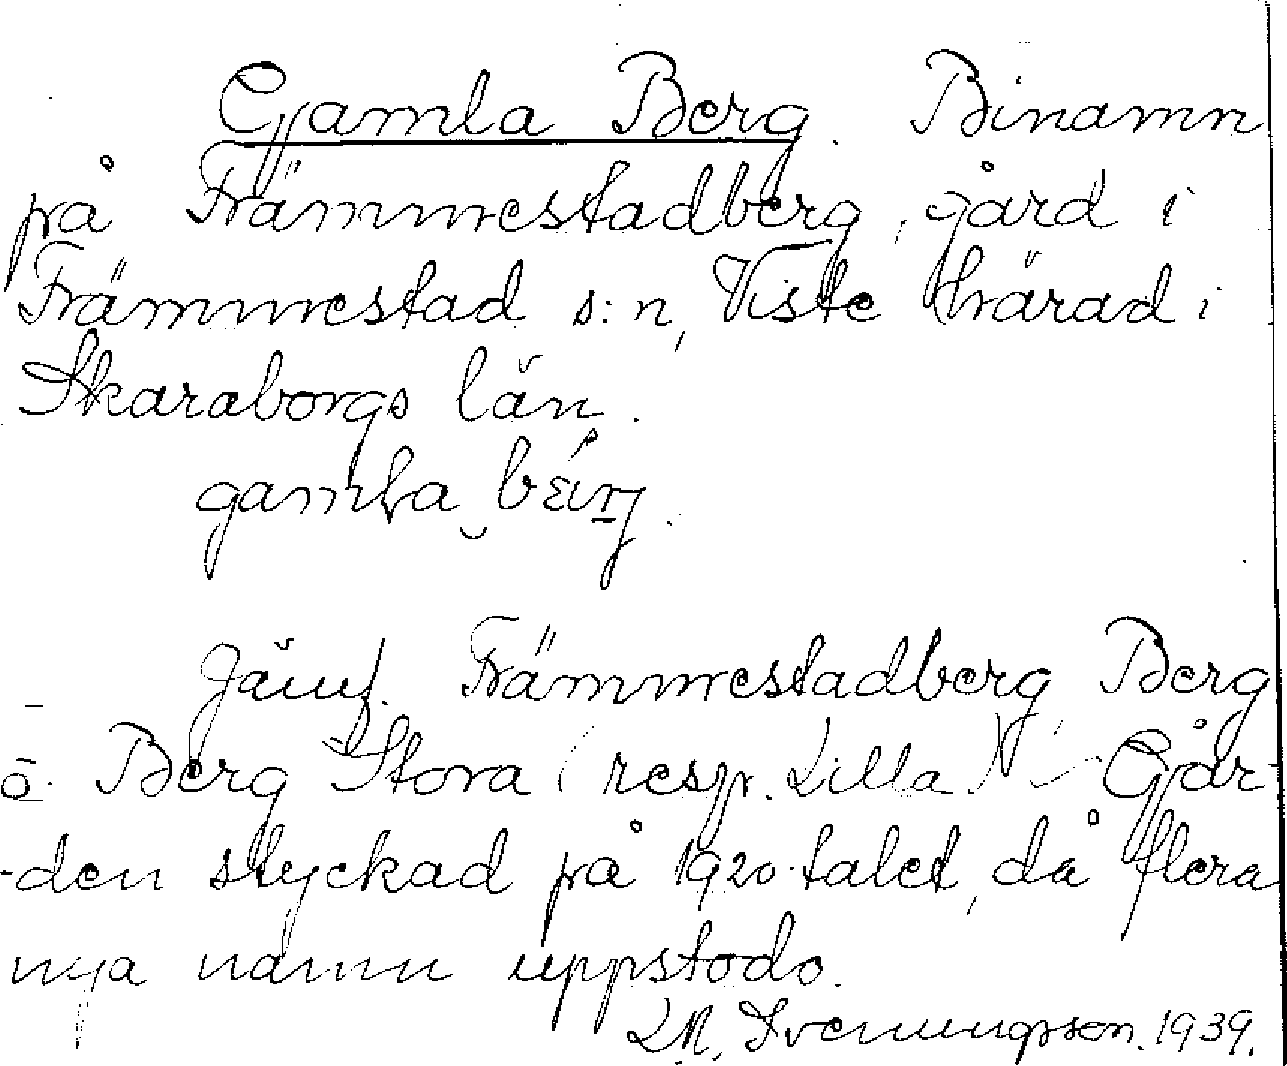 Gamla Berg. Binamn
på Främmestadberg, gård i
Främmestad s:n, Viste härad i
Skaraborgs län.
Jämf. Främmestadberg, Berg
o. Berg Stora (resp. Lilla) Går-
-den styckad på 1920-talet, då flera
nya namn uppstodo.
Svenungsson. 1939.